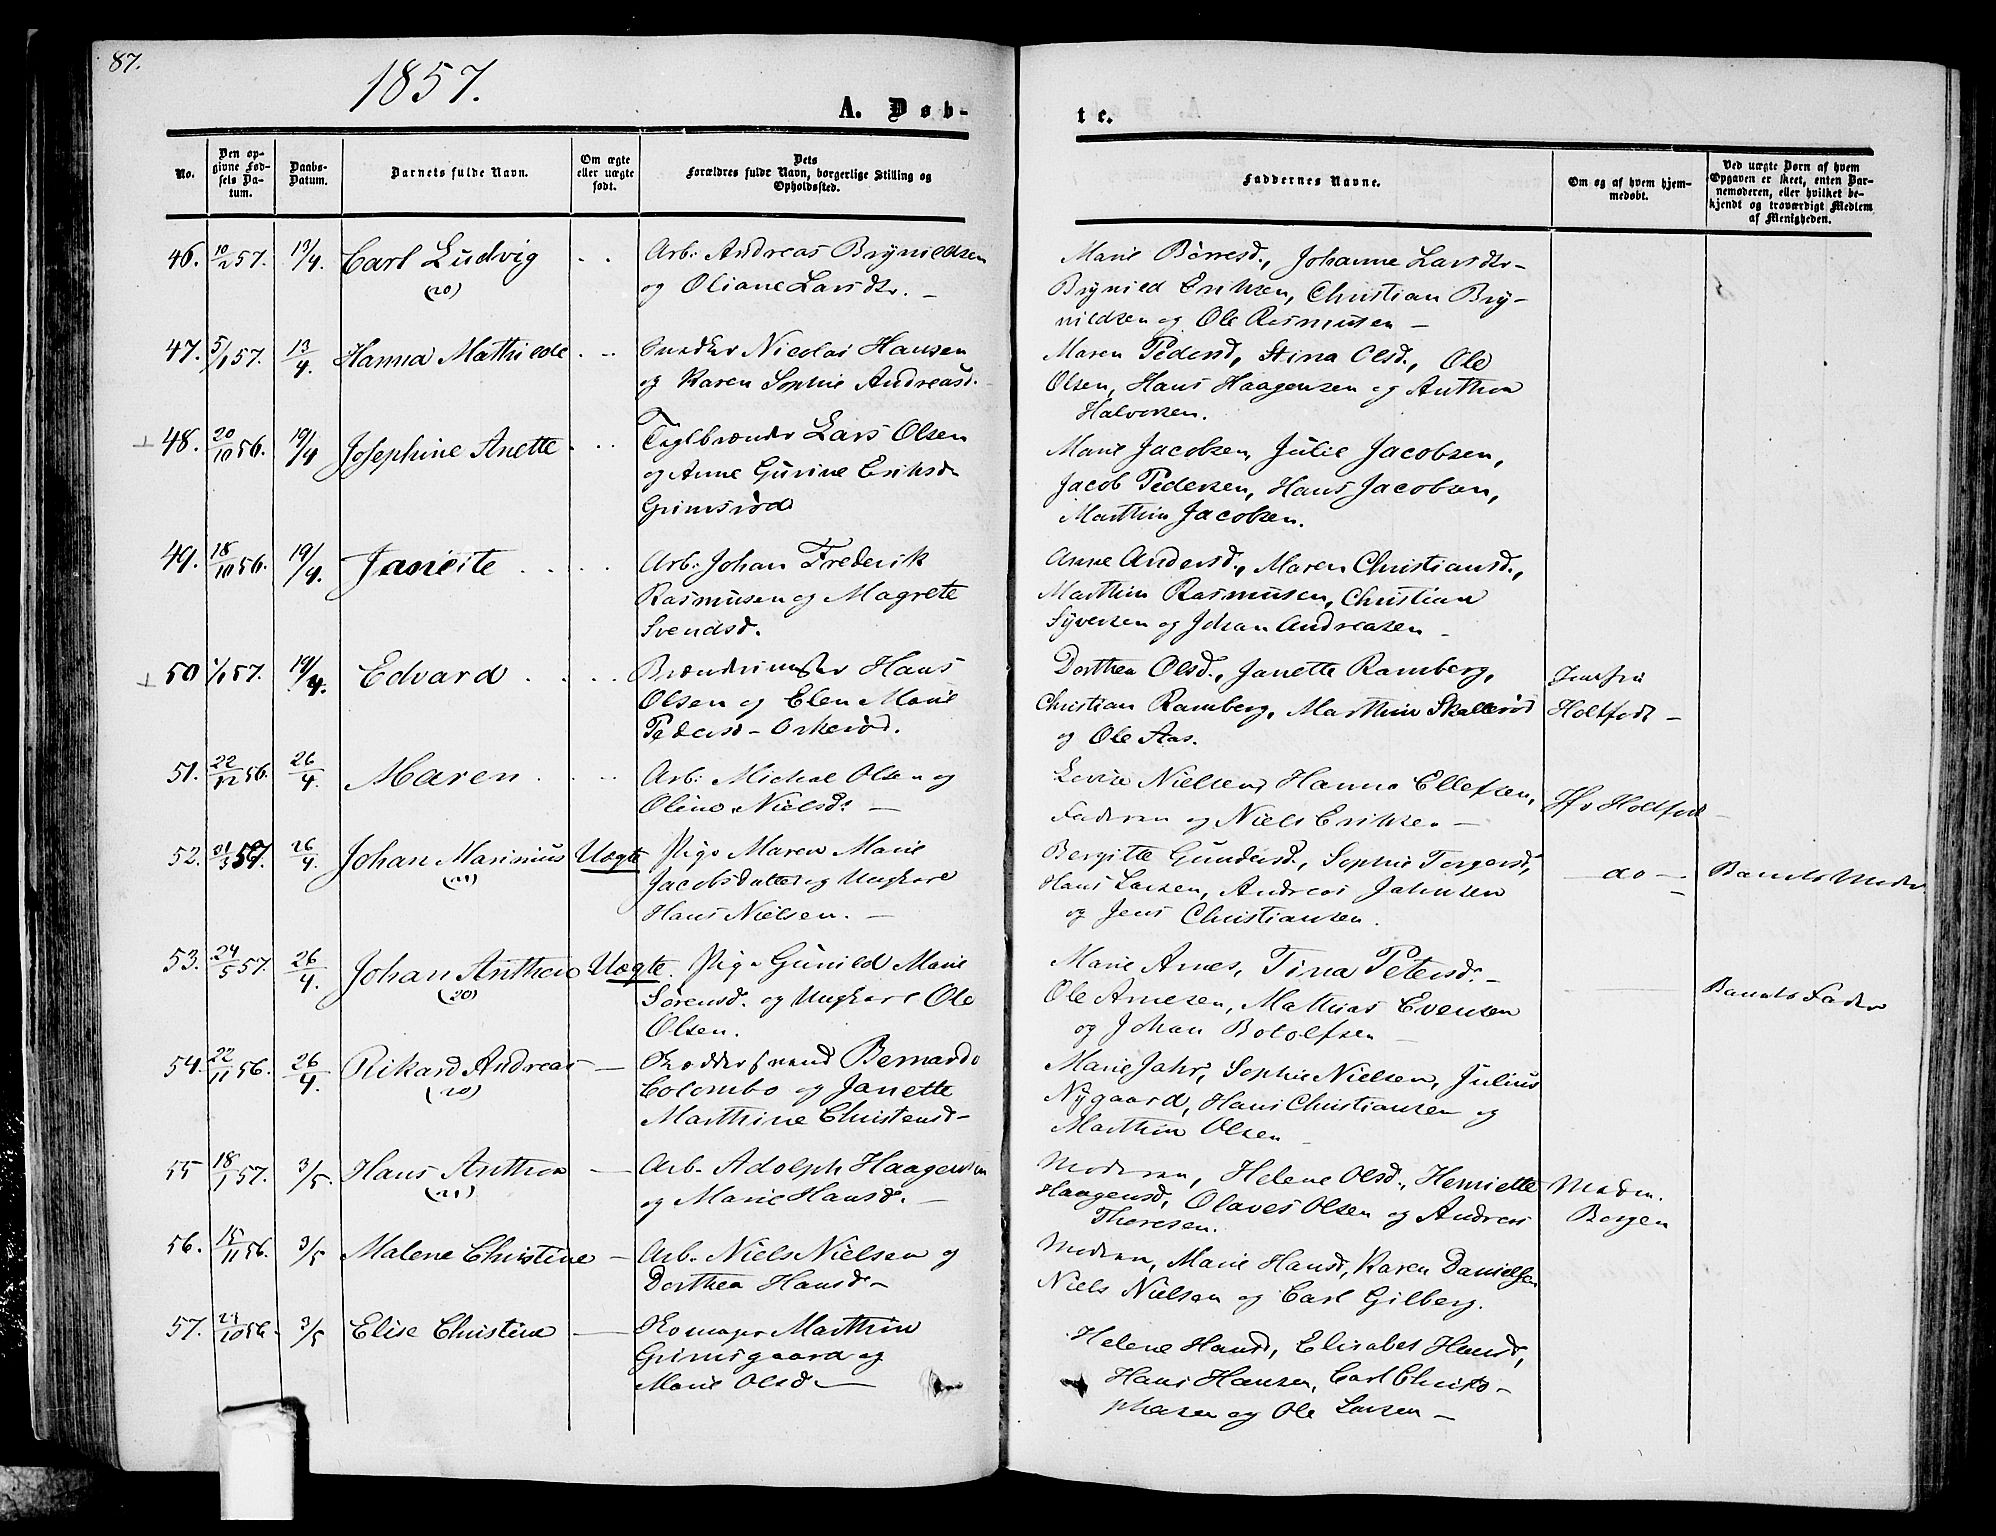 87.
1857.
A. Døb-
te.
No.
Den op-
givne Fød-
sels Da-
tum.
Daabs-
Datum.
Barnets fulde Navn.
Om ægte
eller uægte
født.
Dets
Forældres fulde Navn, borgerlige Stilling og
Opholdssted.
Faddernes Navne.
Om og af hvem hjem-
medøbt.
Ved uægte Børn af hvem
Opgaven er skeet, enten Bar-
nemoderen, eller hvilket be-
kjendt og troværdigt Medlem
af Menigheden.
46. 10/2 57. 13/4. Carl Ludvig
(20)
Arb: Andreas Brynildsen
og Oliane Larsdtr. –
Marie Børresd., Johanne Larsdtr-
Brynild Eriksen, Christian Bry-
nildsen og Ole Rasmusen –
47. 5/1 57. 13/4. Hanna Mathilde
Snedker Nicolai Hansen
og Karen Sophie Andreasd.
Maren Pedersd, Stina Olsd., Ole
Olsen, Hans Haagensen og Anthon
Halvorsen.
48. 20/10 56. 19/4 Josephine Anette
Teglbrænder Lars Olsen
og Anne Gurine Eriksd-
Grimsrød
Marie Jacobsen, Julie Jacobsen,
Jacob Pedersen, Hans Jacobsen,
Marthin Jacobsen.
49. 18/10 56. 19/4. Janette
Arb: Johan Frederik
Rasmusen og Magrete
Svendsd.
Anne Andersd., Maren Christiansd.,
Marthin Rasmusen, Christian
Syversen og Johan Andreasen –
50 1/1 57. 19/4. Edvard
Brænderimester Hans
Olsen og Elen Marie
Pedersd – Orkerød.
Dorthea Olsd., Janette Ramberg,
Christian Ramberg, Marthin Skallerød
og Ole Aas.
Jomfru
Holtfodt –
51. 22/12 56. 26/4. Maren
Arb: Michal Olsen og
Oline Nielsd. –
Lovise Nielsen, Hanna Ellefsen,
Faderen og Niels Eriksen –
Jfr Holtfodt –
52. 31/3 57. 26/4. Johan Marinius Uægte
(21)
Pige Maren Marie
Jacobsdatter og Ungkarl
Hans Nielsen. –
Bergitte Gundersd., Sophie Torgersd.,
Hans Larsen, Andreas Jahnsen
og Jens Christiansen.
– do –
Barnets Moder
53. 24/5 57. 26/4. Johan Anthon Uægte.
(20)
Pige Gunild Marie
Sørensd. og Ungkarl Ole
Olsen.
Marie Arnes, Tina Petersd. –
Ole Arnesen, Mathias Evensen
og Johan Botolfsen –
Barnets Fader
54. 22/11 56. 26/4. Rikard Andreas –
(20)
Bernardo
Colombo og Janette
Marthine Christensd –
Marie Jahr, Sophie Nielsen, Julius
Nygaard, Hans Christiansen og
Marthin Olsen –
55 18/1 57. 3/5. Hans Anthon –
(21)
Arb. Adolph Haagensen
og Marie Hansd. –
Moderen, Helene Olsd., Henriette
Haagensd, Olaves Olsen og Andreas
Thoresen.
Madm.
Borgen
56. 15/11 56. 3/5 Malene Christine –
Arb. Niels Nielsen og
Dorthea Hansd –
Moderen, Marie Hansd, Karen Danielsen
Niels Nielsen og Carl Gilberg.
57. 23/10 56. 3/5 Elise Christine –
Skomager Marthin
Grimsgaard og
Marie Olsd –
Helene Hansd, Elisabet Hansd,
Hans Hansen, Carl Christo-
phersen og Ole Larsen –